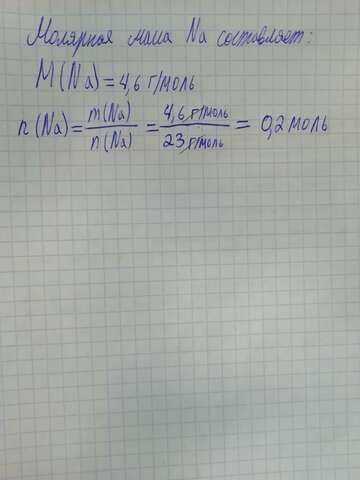 Молярная масса Na составляет:
M(Na) = 4,6 г/моль
n(Na) = m(Na)/n(Na) = 4,6 г/моль/23 г/моль = 0,2 моль